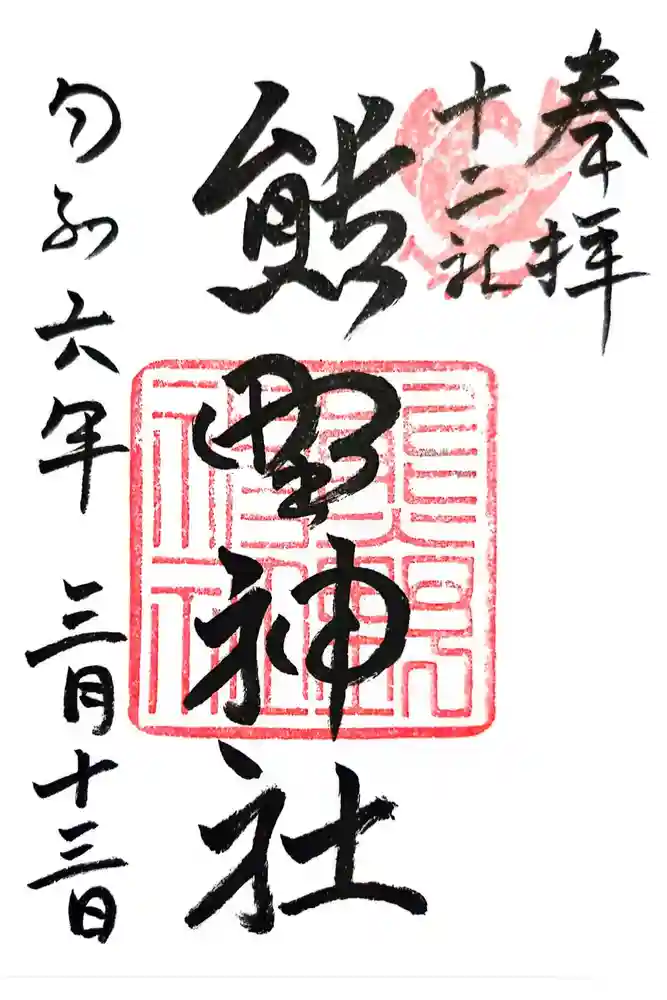 奉拝
十二社
熊野神社
令和六年三月十三日